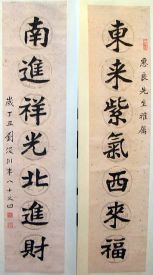 惠良先生雅屬
東来紫氣西來福
南進祥光北進財
歲丁丑劉川年八十又四